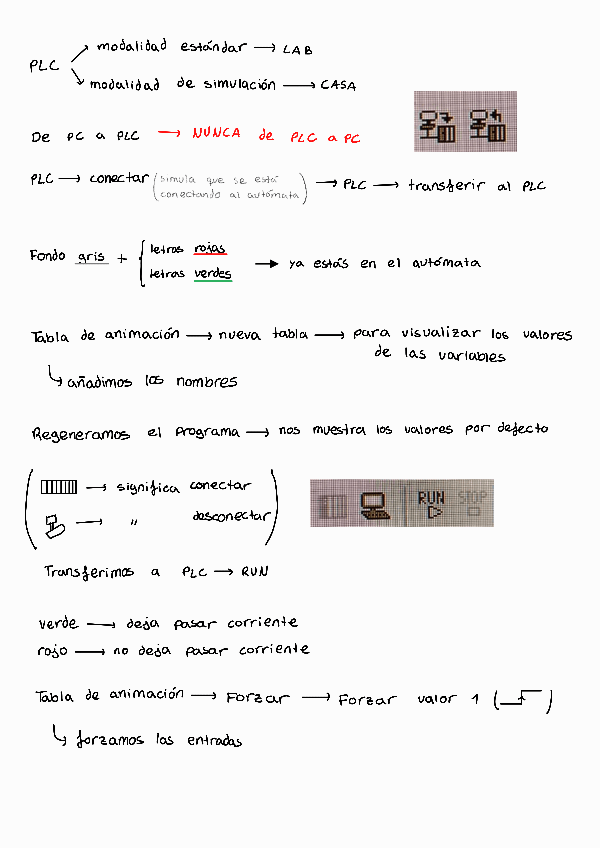 PLC
modalidad estándar → LAB
modalidad de simulación → CASA
De PC a PLC → NUNCA de PLC a PC
PLC → conectar (simula que se está conectando al autómata) → PLC → transferir al PLC
Fondo gris + { letras rojas
letras verdes → ya estás en el autómata
Tabla de animación → nueva tabla → para visualizar los valores
de las variables
↳ añadimos los nombres
Regeneramos el programa → nos muestra los valores por defecto
→ significa conectar
→ " desconectar
RUN STOP
Transferimos a PLC → RUN
verde → deja pasar corriente
rojo → no deja pasar corriente
Tabla de animación → Forzar → Forzar valor 1 ( )
↳ forzamos las entradas